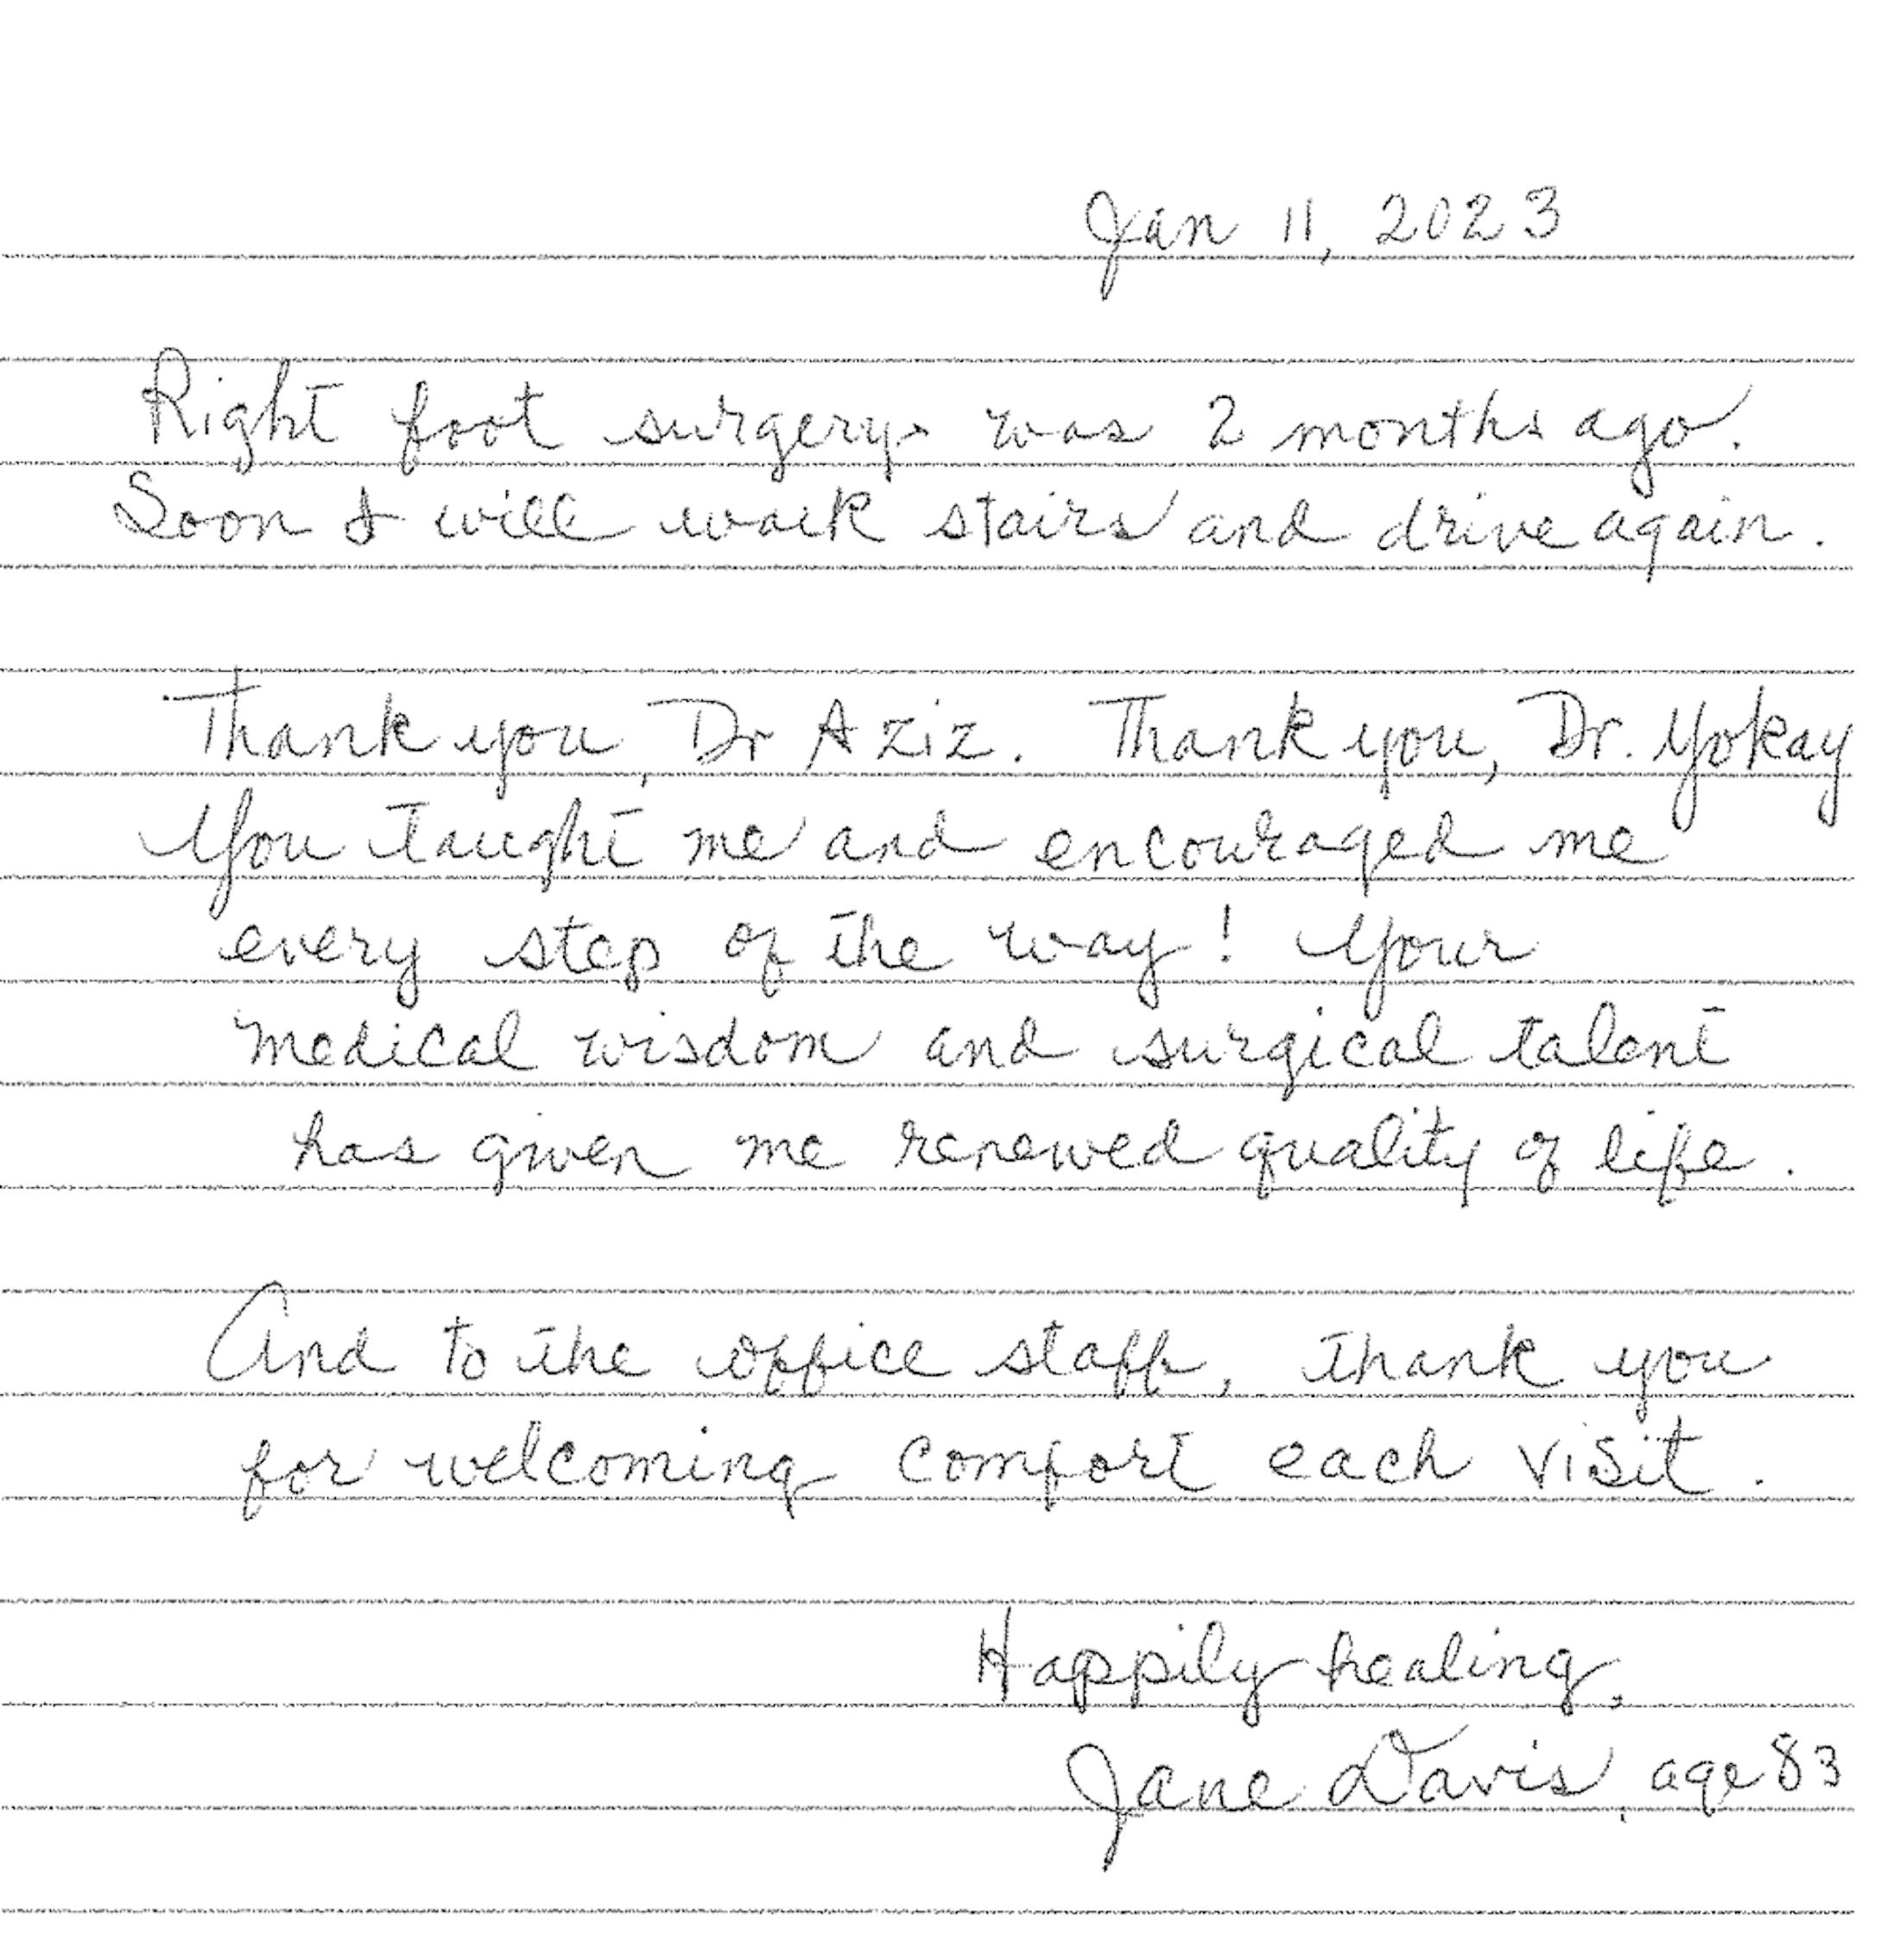 Jan 11, 2023
Right foot surgery was 2 months ago.
Soon I will walk stairs and drive again.
Thank you, Dr Aziz. Thank you, Dr. Yokay
You taught me and encouraged me
every step of the way! Your
medical wisdom and surgical talent
has given me renewed quality of life.
And to the office staff, thank you
for welcoming comfort each visit.
Happily healing,
Jane Davis, age 83